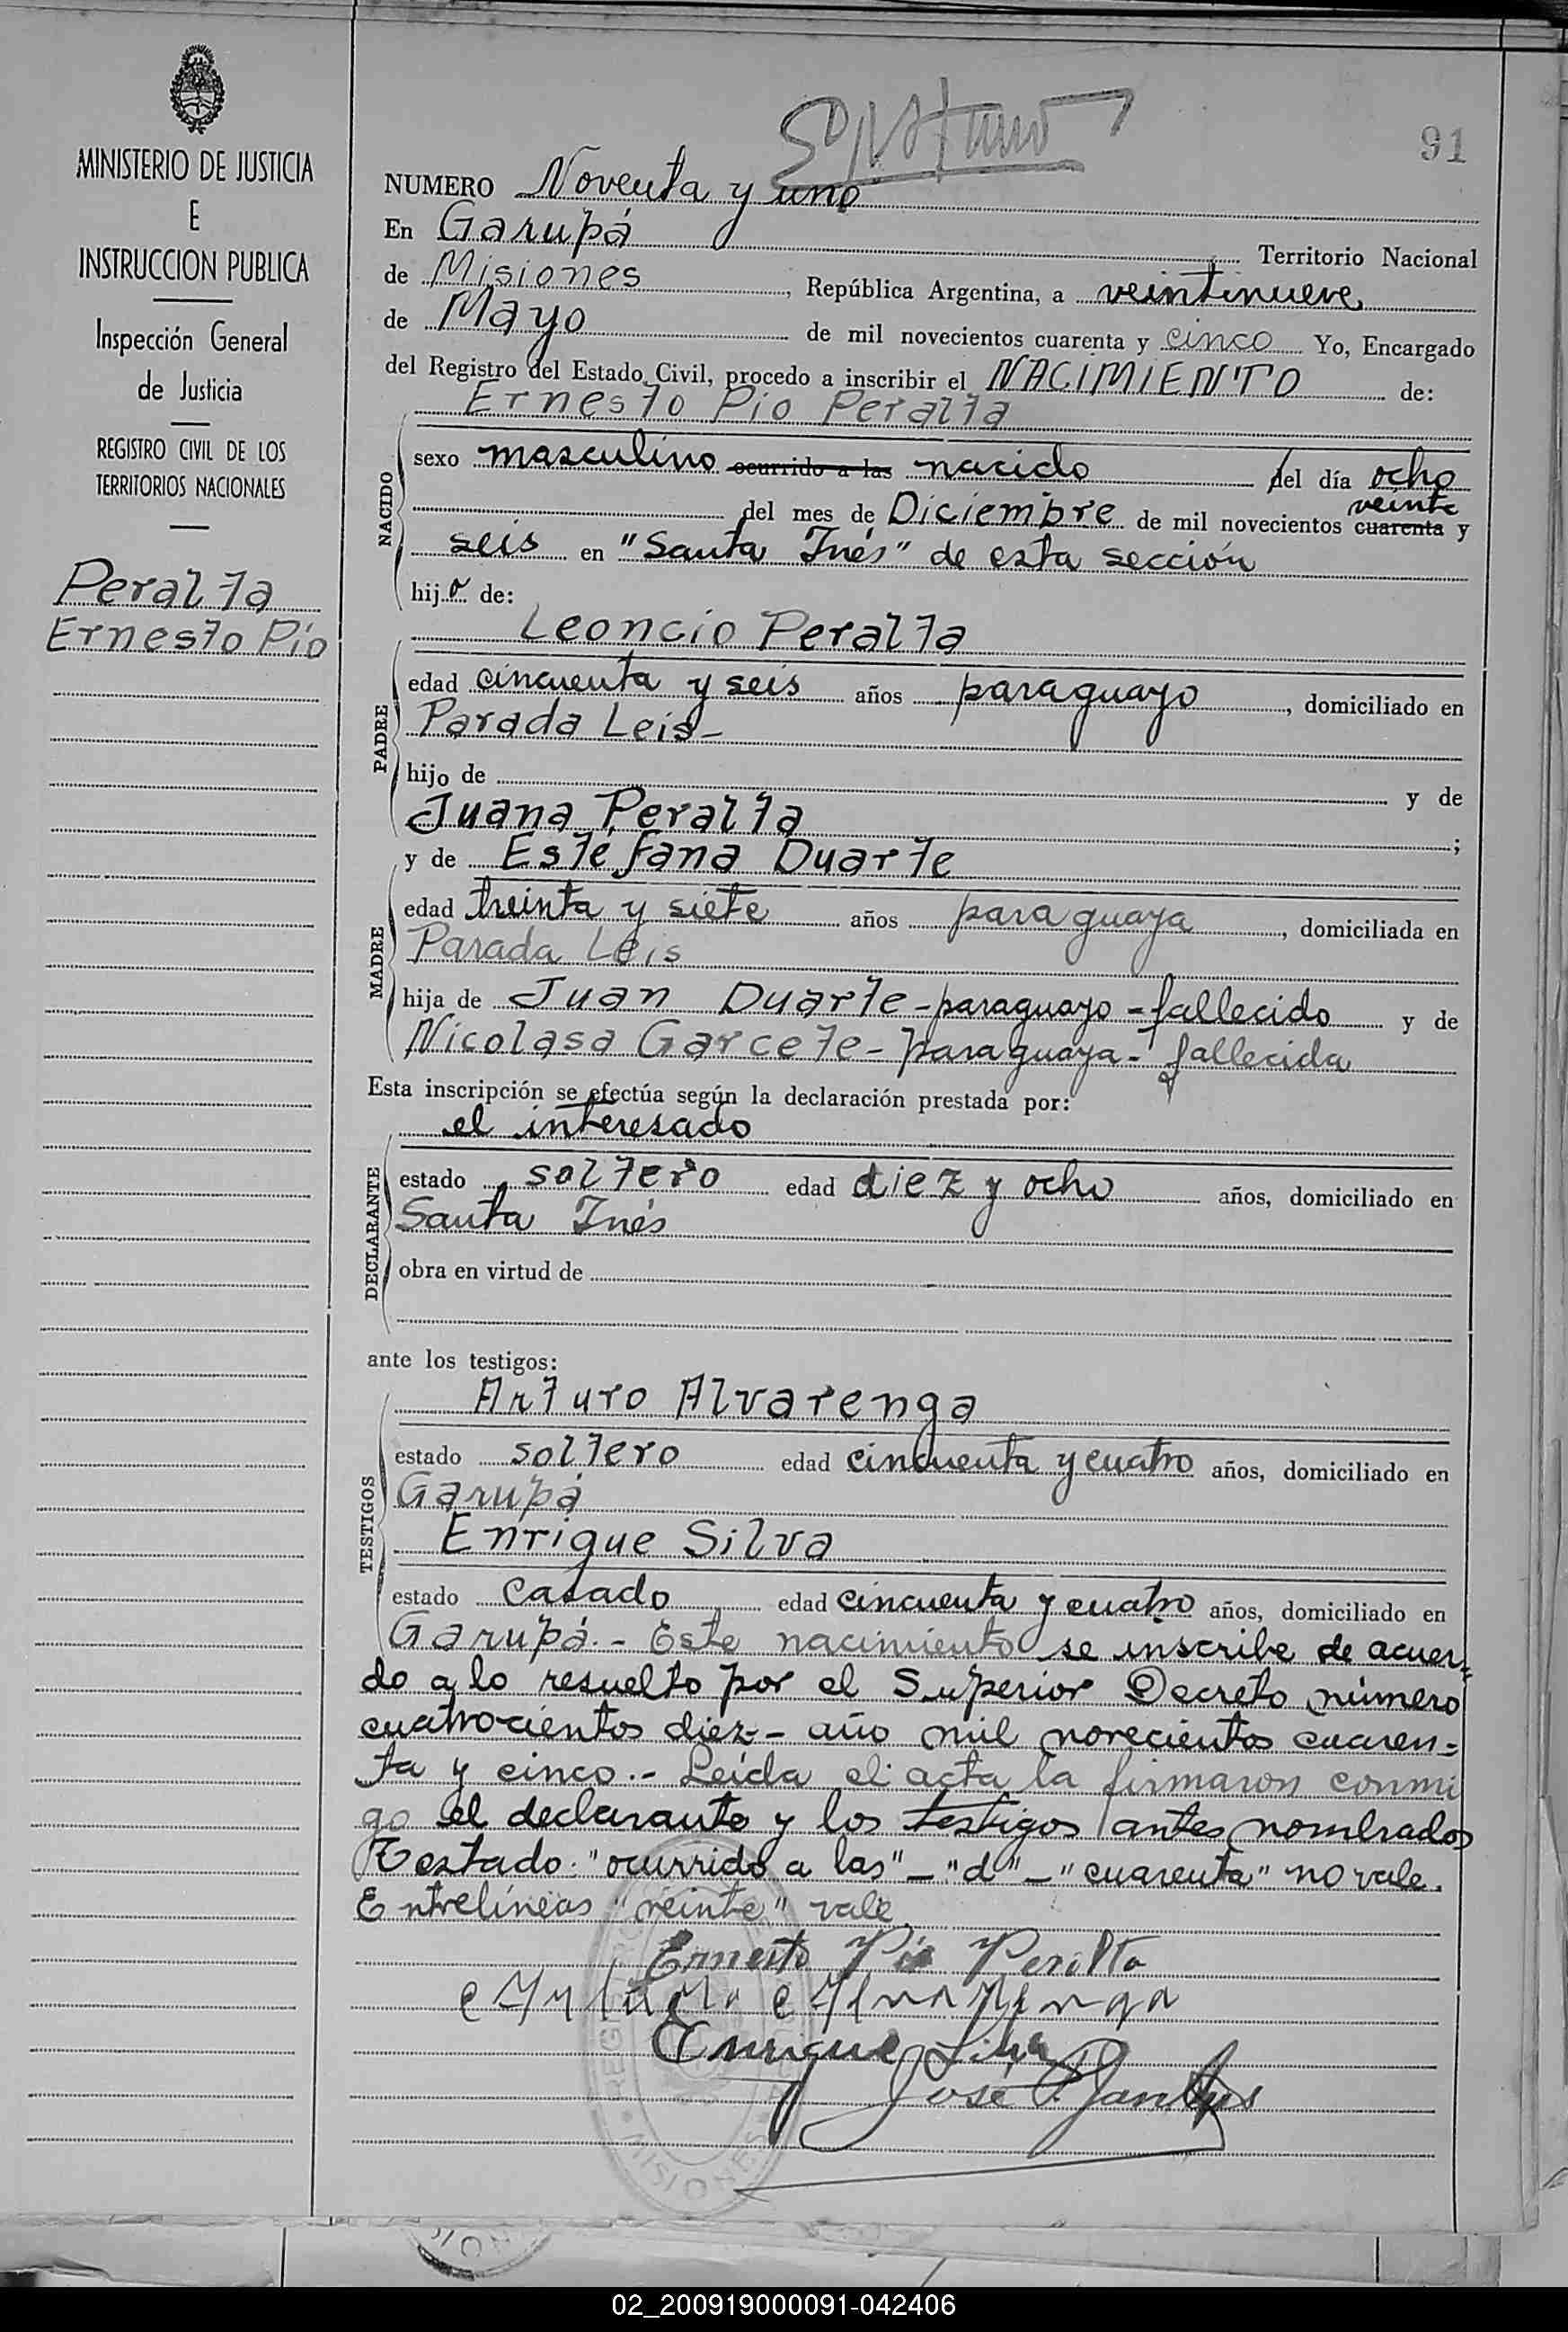 91
MINISTERIO DE JUSTICIA
E
INSTRUCCION PUBLICA
Inspección General
de Justicia
REGISTRO CIVIL DE LOS
TERRITORIOS NACIONALES
Peralta
Ernesto Pío
NUMERO Noventa y uno
En Garupá Territorio Nacional
de Misiones, República Argentina, a veintinueve
de Mayo de mil novecientos cuarenta y cinco Yo, Encargado
del Registro del Estado Civil, procedo a inscribir el NACIMIENTO de:
Ernesto Pío Peralta
NACIDO
sexo masculino ocurrido a las nacido del día ocho
veinte
del mes de Diciembre de mil novecientos cuarenta y
seis en "Santa Inés" de esta sección
hijo de:
PADRE
Leoncio Peralta
edad cincuenta y seis años paraguayo, domiciliado en
Parada Leis-
hijo de y de
Juana Peralta ;
MADRE
y de Estéfana Duarte
edad treinta y siete años paraguaya, domiciliada en
Parada Leis
hija de Juan Duarte-paraguayo-fallecido y de
Nicolasa Garcete-paraguaya-fallecida
Esta inscripción se efectúa según la declaración prestada por:
DECLARANTE
el interesado
estado soltero edad diez y ocho años, domiciliado en
Santa Inés
obra en virtud de
ante los testigos:
TESTIGOS
Arturo Alvarenga
estado soltero edad cincuenta y cuatro años, domiciliado en
Garupá
Enrique Silva
estado casado edad cincuenta y cuatro años, domiciliado en
Garupá.- Este nacimiento se inscribe de acuer=
do a lo resuelto por el Superior Decreto número
cuatrocientos diez-- año mil novecientos cuaren=
ta y cinco.- Leída el acta la firmaron conmi
go el declarante y los testigos antes nombrados
Testado: "ocurrido a las"-"d"-"cuarenta" no vale.
Entrelíneas "veinte" vale.
Ernesto Pío Peralta
Arturo Alvarenga
Enrique Silva
José
MISIONES
02_200919000091-042406